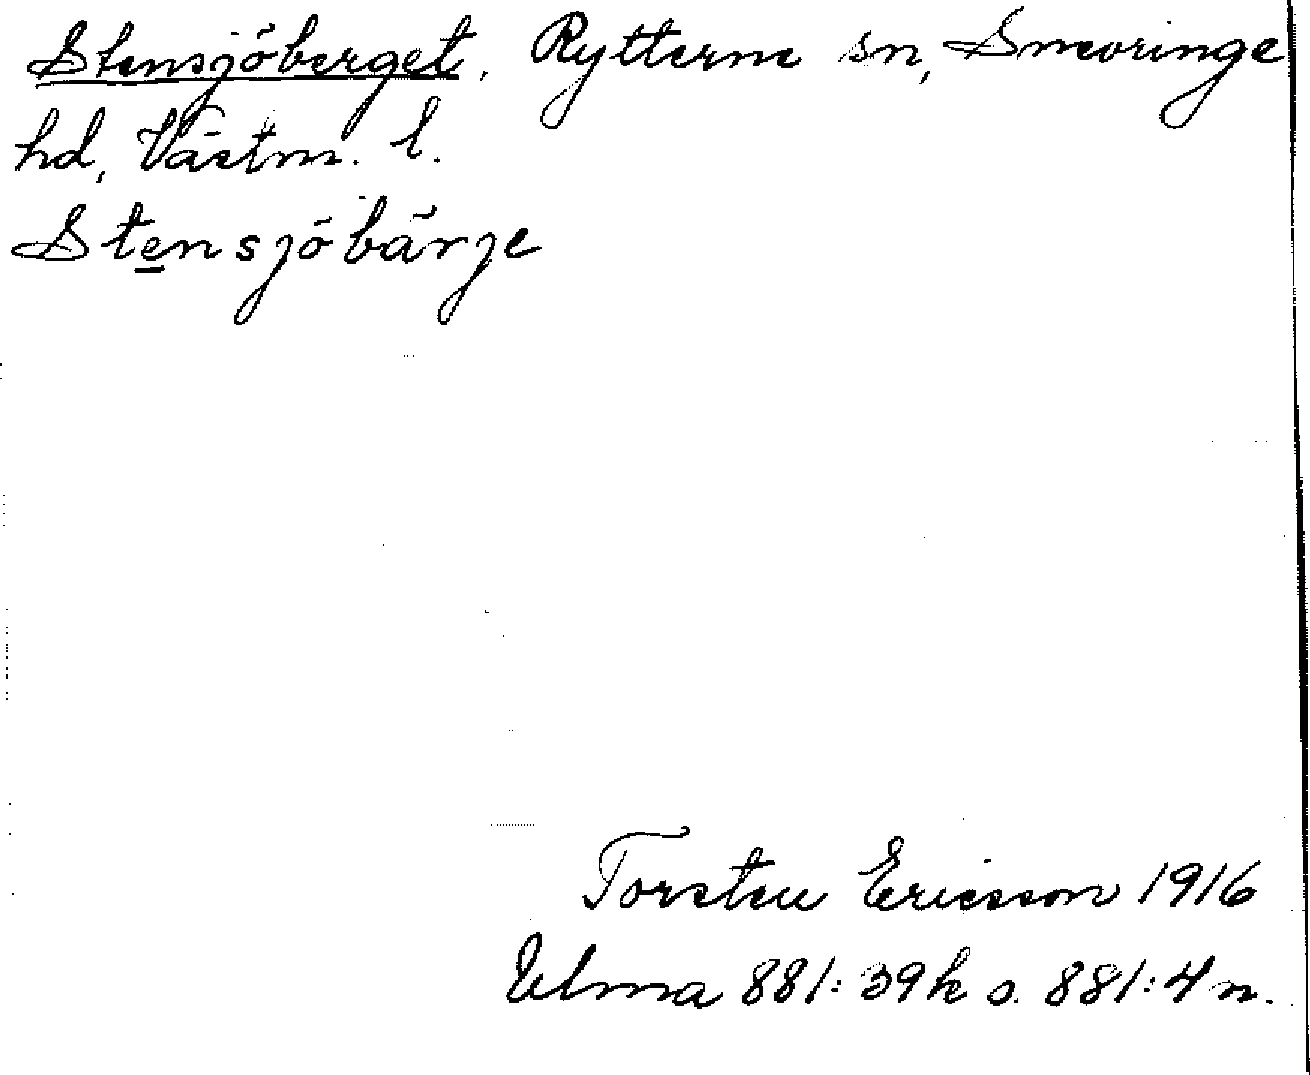 Stensjöberget, Rytterne sn, Snevringe
hd, Västm. l.
Stensjöbärje
Torsten Ericsson 1916
Ulma 881:39 k s. 881:4 n.